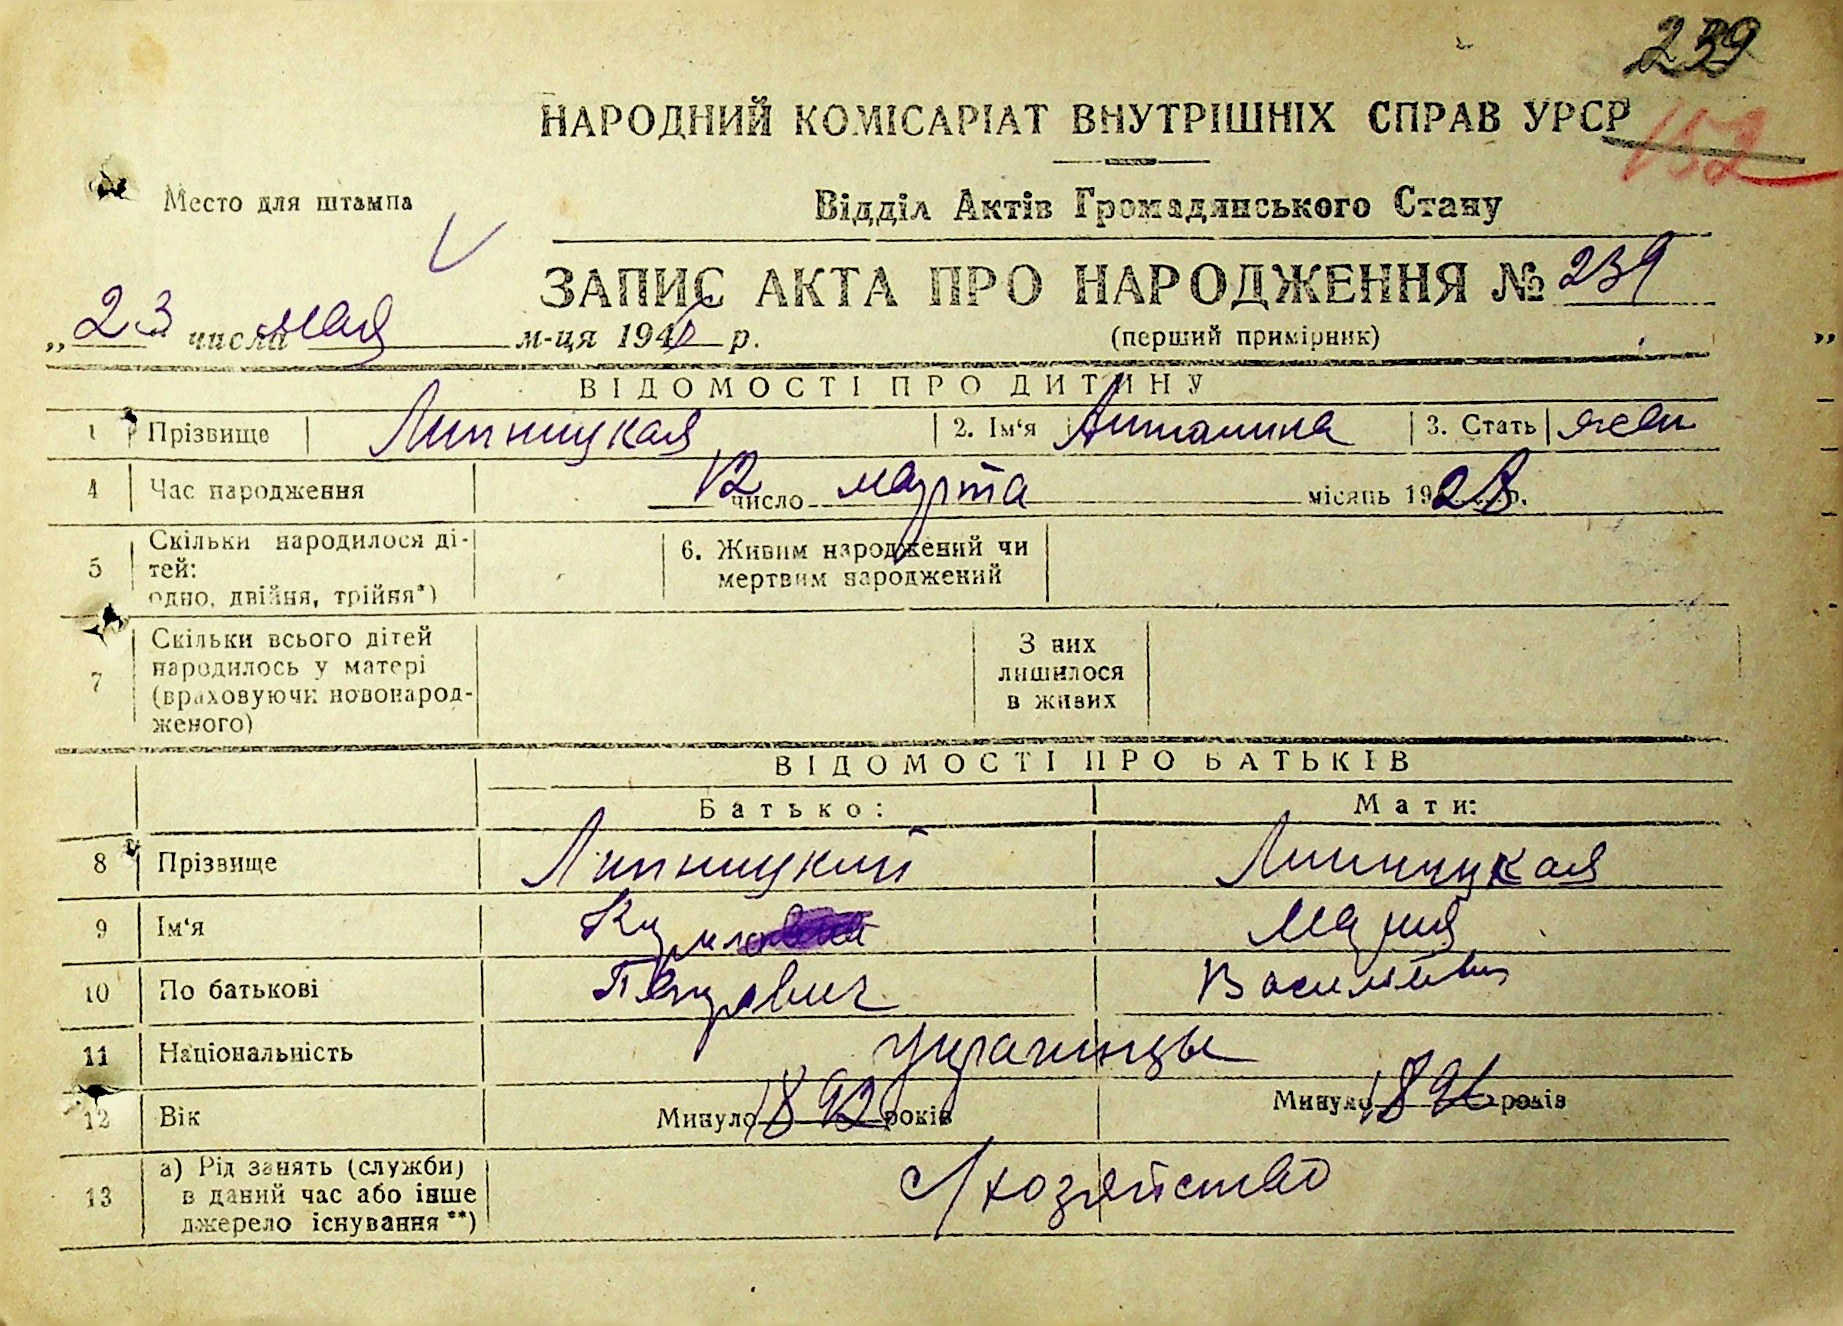 239
НАРОДНИЙ КОМІСАРІАТ ВНУТРІШНІХ СПРАВ УРСР
152
Место для штампа
Відділ Актів Громадянського Стану
ЗАПИС АКТА ПРО НАРОДЖЕННЯ № 239
„ 23 " числа мая м-ця 194 р.
(перший примірник)
ВІДОМОСТІ ПРО ДИТИНУ
1 Прізвище Липницкая 2. Ім'я Антонина 3. Стать жен
4 Час народження 12 число марта місяць 1928 р.
5 Скільки народилося ді-
тей:
одно, двійня, трійня*)
6. Живим народжений чи
мертвим народжений
7 Скільки всього дітей
народилось у матері
(враховуючи новонарод-
женого)
З них
лишилося
в живих
ВІДОМОСТІ ПРО БАТЬКІВ
Батько: Мати:
8 Прізвище Липницкий Липницкая
9 Ім'я Мария
10 По батькові Петрович Васильевн
11 Національність украинцы
12 Вік Минуло 1892 років Минуло років
13 а) Рід занять (служби)
в даний час або інше
джерело існування **)
с/хозяйство